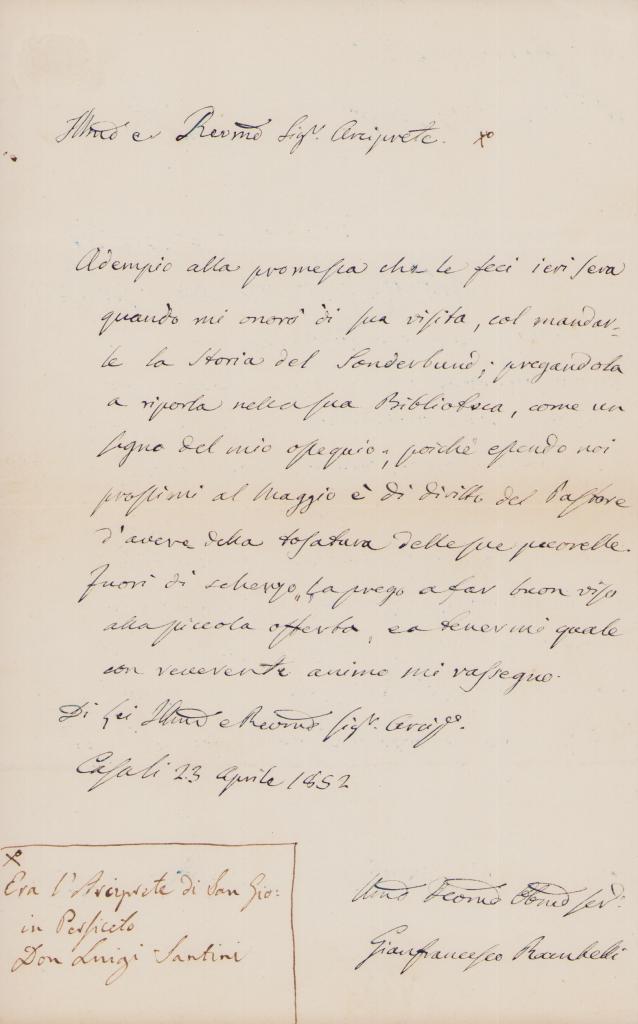 Illmo e Revmo Sigr. Arciprete. x°
Adempio alla promessa che le feci ieri sera
quando mi onorò di sua visita, col mandar-
le la Storia del Sonderbund; pregandola
a riporla nella sua Biblioteca, come un
segno del mio ossequio; poichè essendo noi
prossimi al Maggio è di diritto del Pastore
d'avere della tosatura delle sue pecorelle.
Fuori di scherzo, La prego a far buon viso
alla piccola offerta, ed a tenermi quale
con reverente animo mi rassegno.
Di Lei Illmo e Revmo Sigr. Arcipe.
Casali 23 Aprile 1852
Umo Servd:
Gianfrancesco Rambelli
x
Era l'Arciprete di San Gio:
in Persiceto
Don Luigi Santini